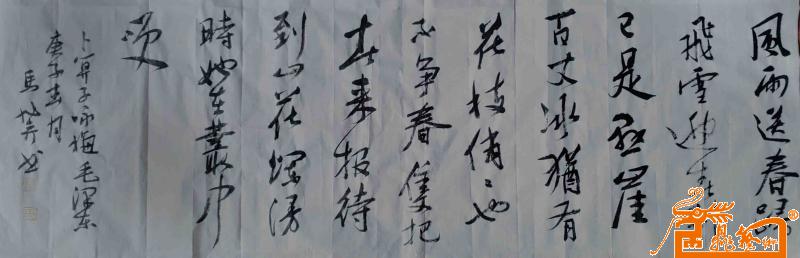 風雨送春歸
飛雪迎春到
已是悬崖
百丈冰猶有
花枝俏〻也
不争春隻把
春来报待
到山花爛漫
時她在叢中
笑
卜算子咏梅毛泽东
庚子春月
馬
书